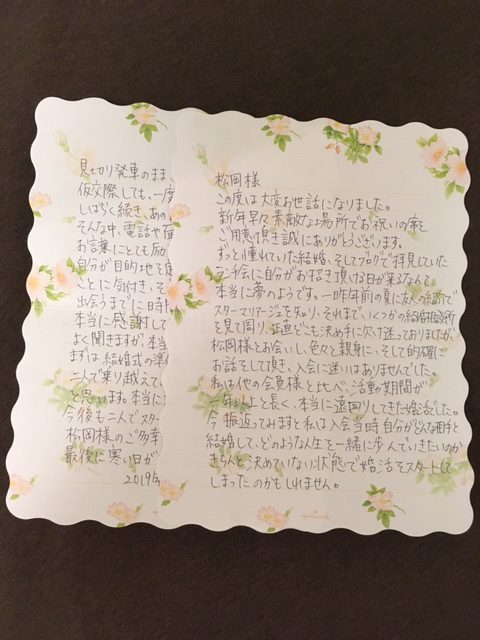 松岡様
この度は大変お世話になりました。
新年早々素敵な場所でお祝いの席を
ご用意頂き誠にありがとうございます。
ずっと憧れていた結婚、そしてブログで拝見していた
ランチ会に自分がお招き頂ける日が来るなんて
本当に夢のようです。一昨年前の夏に友人の紹介で
スターマリアージュを知り、それまでいくつかの結婚相談所
を見て周り、正直どこも決め手に欠け迷っておりましたが、
松岡様とお会いし、色々と親身に、そして的確に
お話をして頂き、入会に迷いはありませんでした。
私は他の会員様と比べ、活動期間が
一年以上と長く、本当に遠回りしてきた婚活でした。
今振返ってみますと私は入会当時自分がどんな相手と
結婚して、どのような人生を一緒に歩んでいきたいのか
きちんと決めていない状態で婚活をスタートして
しまったのかもしれません。
見切り発車のまま
仮交際しても、一度
しばらく続き、あの
そんな中、電話や面
お言葉にとても励
自分が目的地を定
ことに気付き、そ
出会うまでに時間
本当に感謝して
よく聞きますが、本当
まずは結婚式の準
二人で乗り越えて
と思います。本当に
今後も二人でスター
松岡様のご多幸
最後に寒い日が
2019年